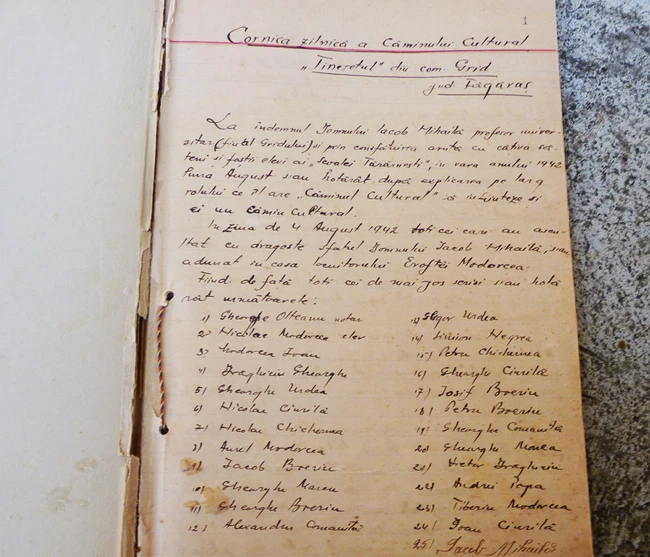 1
Cornica zilnică a Căminului Cultural
„Tineretul" din com. Grid
jud Făgăraș
La îndemnul Domnului Iacob Mihăilă profesor univer-
sitar (fiul Gridului) și prin consfătuirea avută cu câțiva să-
teni și foști elevi ai „Școalei Țărănești", în vara anului 1942
luna August s'au hotărât, după explicarea pe larg
rolului ce îl are „Căminul Cultural" să înființeze și
ei un cămin cultural.
In ziua de 4 August 1942 toți cei care au ascu-
ltat cu dragoste sfatul Domnului Iacob Mihăilă, s'au
adunat în casa locuitorului Eroftei Modorcea.
Fiind de față toți cei de mai jos scriși s'au hotă
rât următoarele:
1) Gheorghe Olteanu notar
2) Nicolae Modorcea elev
3) Modorcea Ioan
4) Drăghiciu Gheorghe
5) Gheorghe Urdea
6) Nicolae Ciurilă
7) Nicolae Chichernea
8) Aurel Modorcea
9) Iacob Breviu
10) Gheorghe Marcu
11) Gheorghe Breviu
12) Alexandru Comaniță
13) Urdea
14) Negrea
15) Petru Chichernea
16) Gheorghe Ciurilă
17) Iosif Breviu
18) Petru Breviu
19) Gheorghe Comaniță
20) Gheorghe
21) Victor Drăghiciu
22) Andrei Popa
23) Tiberiu Modorcea
24) Ioan Ciurilă
25) Iacob Mihăilă